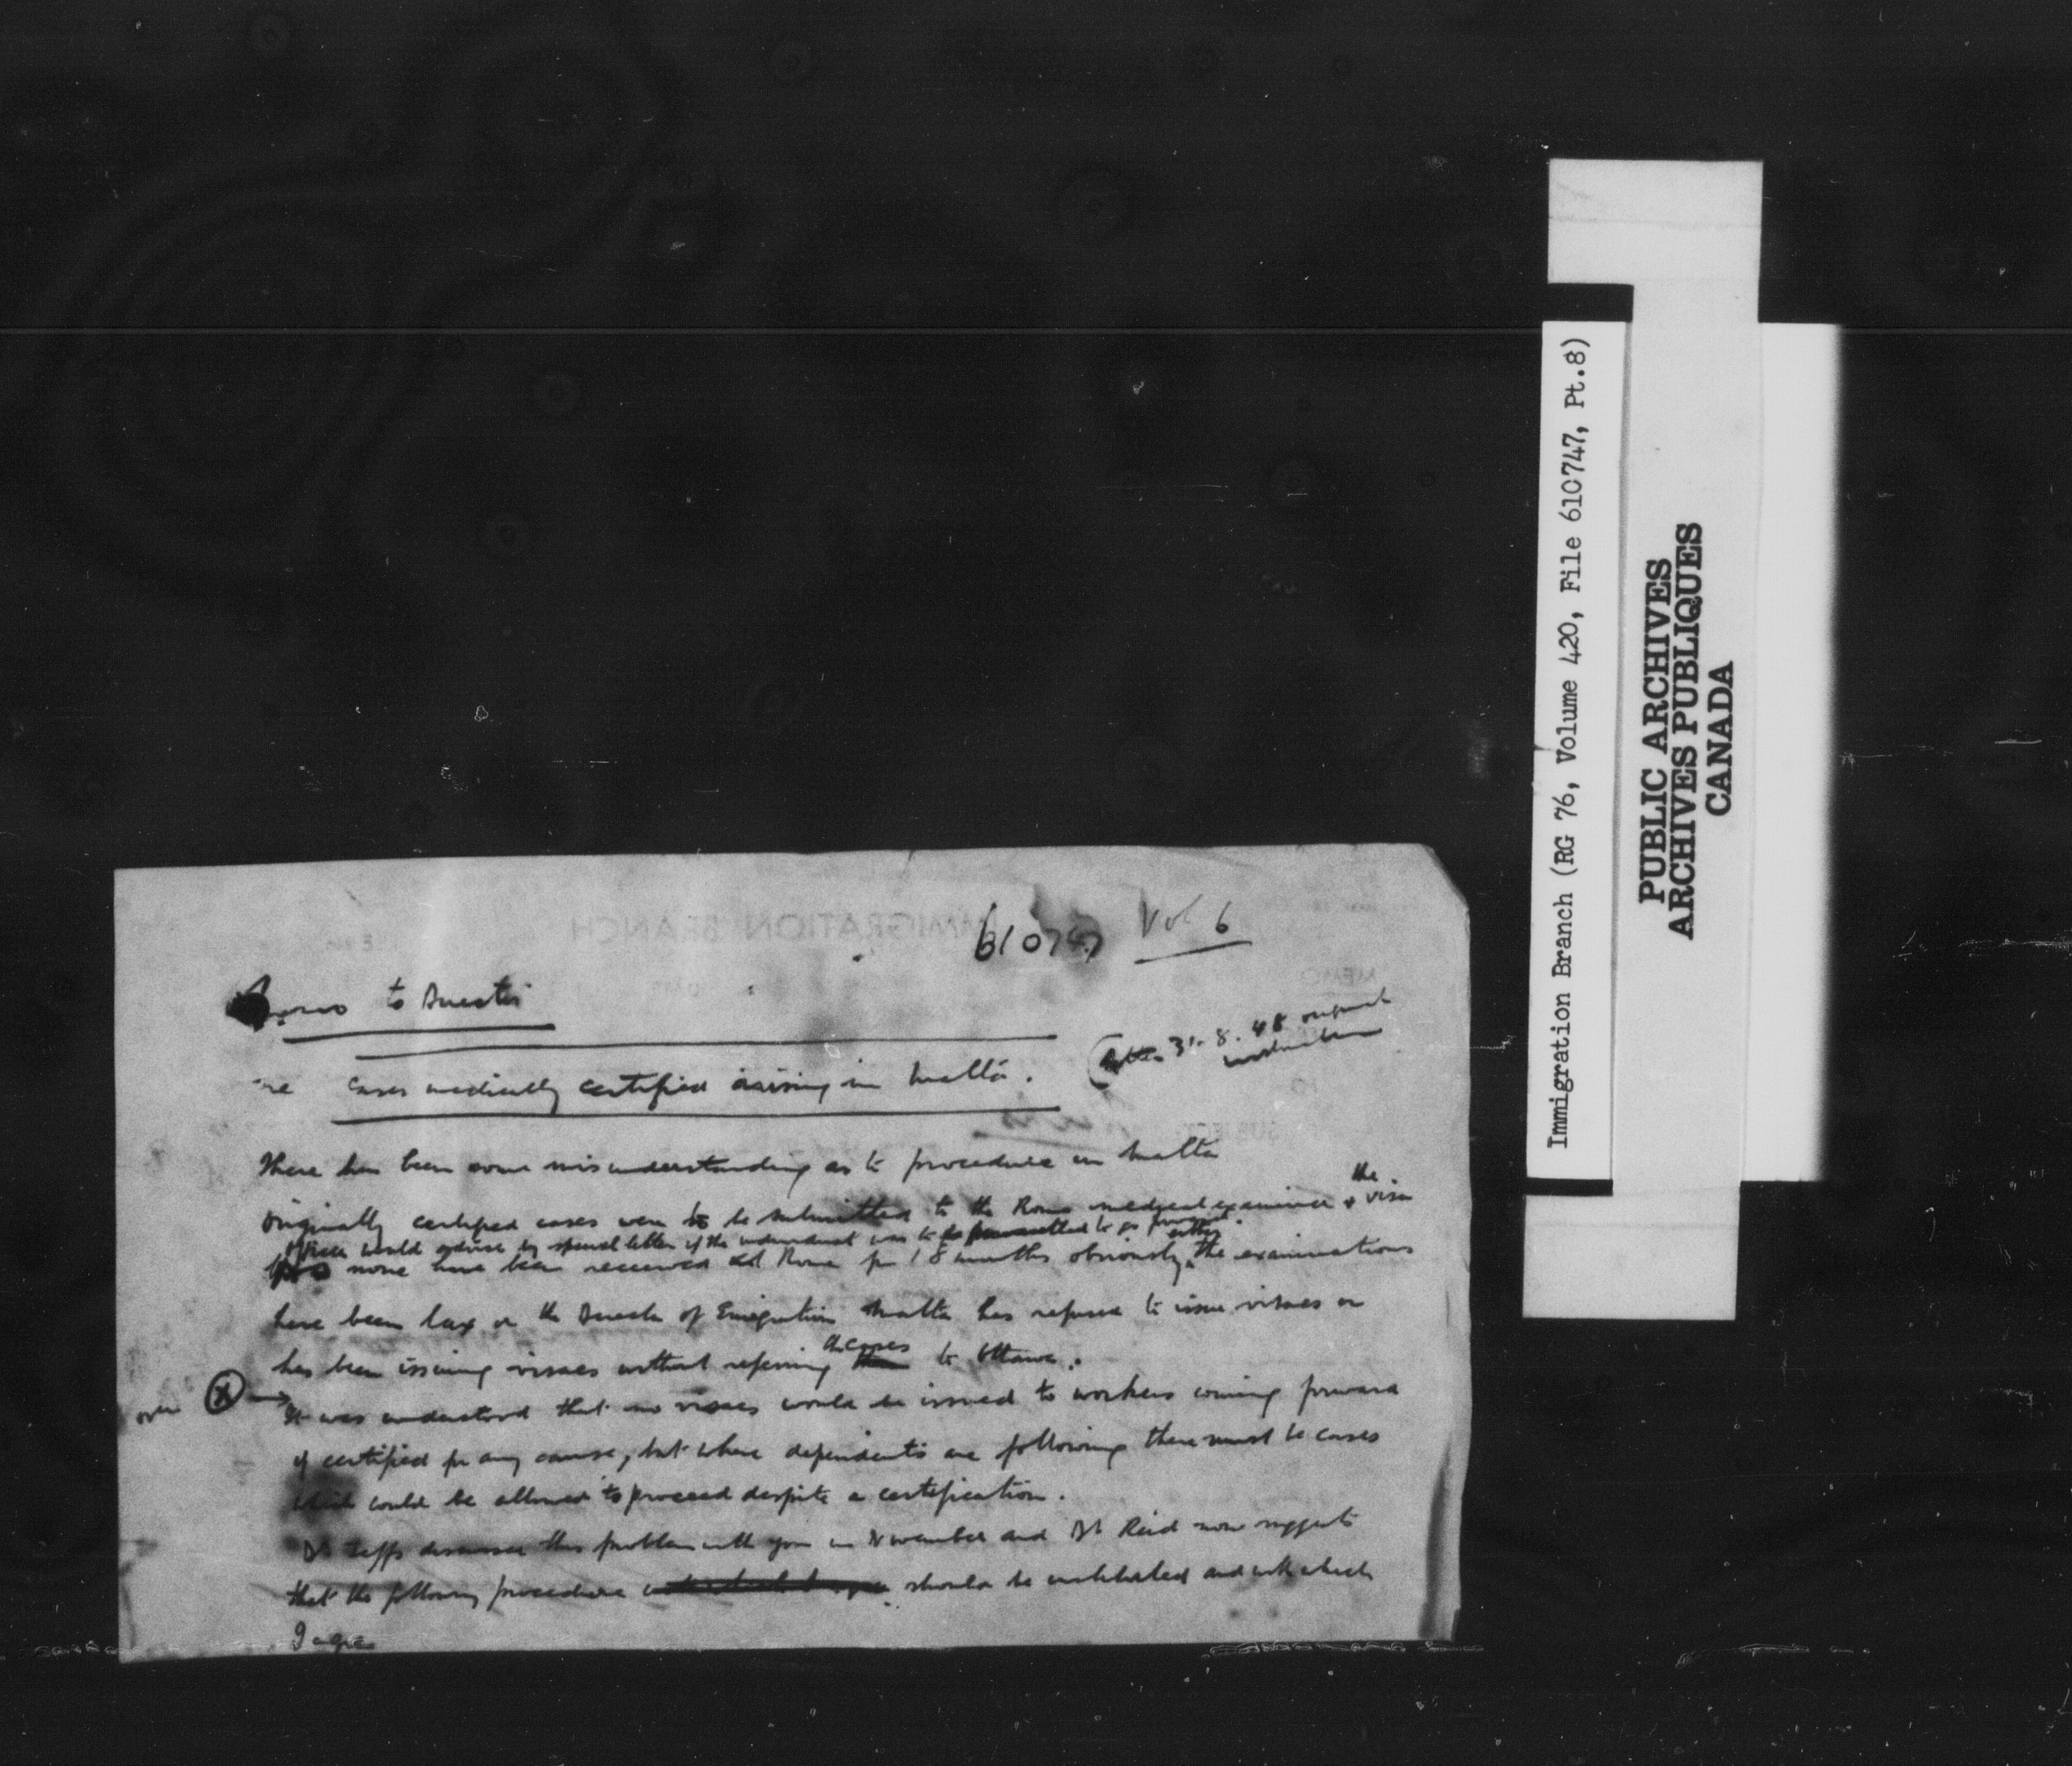 610747 Vol 6
Memo to Director
re cases medically certified arising in Malta.
(Letter 31.8.48 original
instruction
There has been some misunderstanding as to procedure in Malta
the
Originally certified cases were to be submitted to the Rome medical examiner & visa
officer would advise by special letter if the individual was to be permitted to go forward.
either
none have been received at Rome for 18 months obviously the examinations
have been lax or the Director of Emigration Malta has refused to issue visaes or
the cases
has been issuing visaes without referring them to Ottawa.
over X → It was understood that no visaes would be issued to workers coming forward
if certified for any cause, but where dependents are following there must be cases
which could be allowed to proceed despite a certification.
Dr Jeffs discussed this problem with you in November and Dr Reid now suggests
that the following procedure should be instituted and with which
I agree
Immigration Branch (RG 76, Volume 420, File 610747, Pt.8)
PUBLIC ARCHIVES
ARCHIVES PUBLIQUES
CANADA